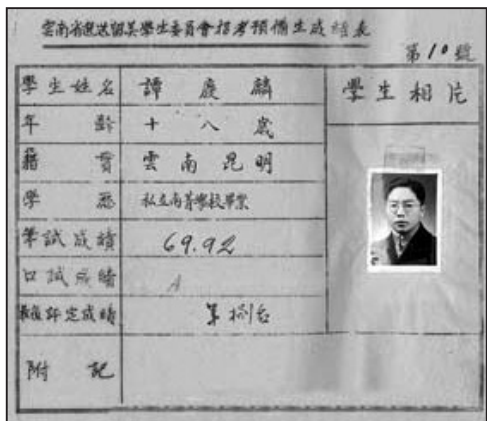 雲南省選送留美學生委員會招考預備生成績表
第10號
學生姓名 譚慶麟 學生相片
年齡 十八歲
籍貫 雲南昆明
學歷 私立南菁學校畢業
筆試成績 69.92
口試成績 A
最後評定成績 第捌名
附記